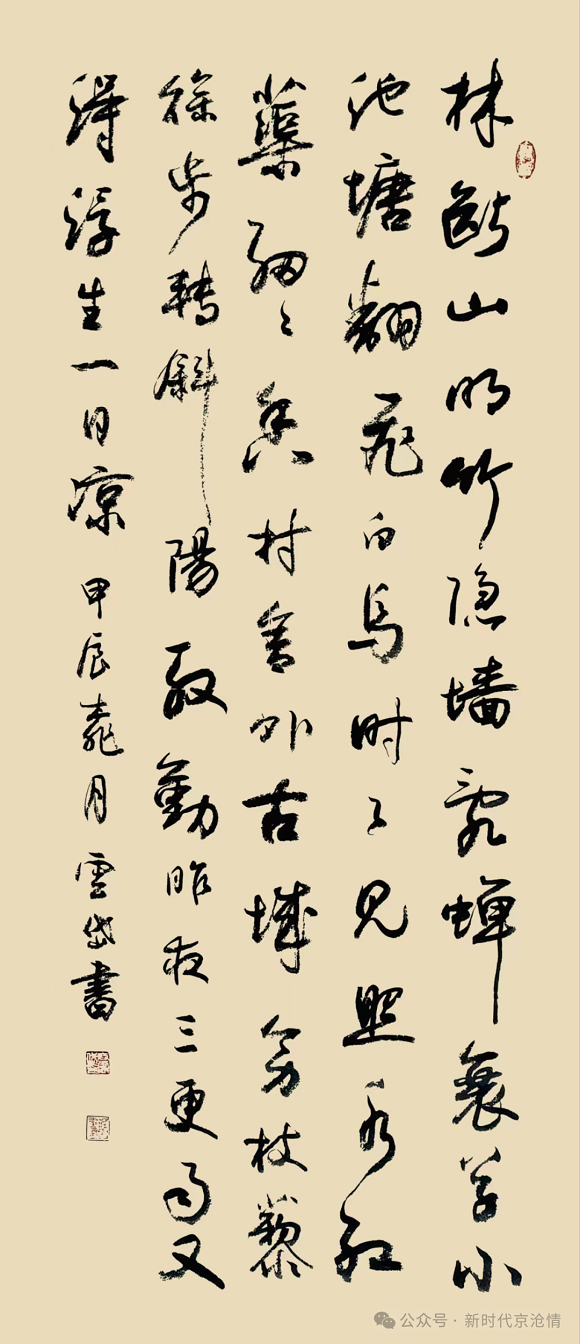 林斷山明竹隐墙亂蝉衰草小
池塘翻空白鳥时々見照水红
蕖细々香村舍外古城旁杖藜
徐步轉斜陽殷勤昨夜三更雨又
得浮生一日凉 甲辰月 雲岱書
公众号 · 新时代京沧情